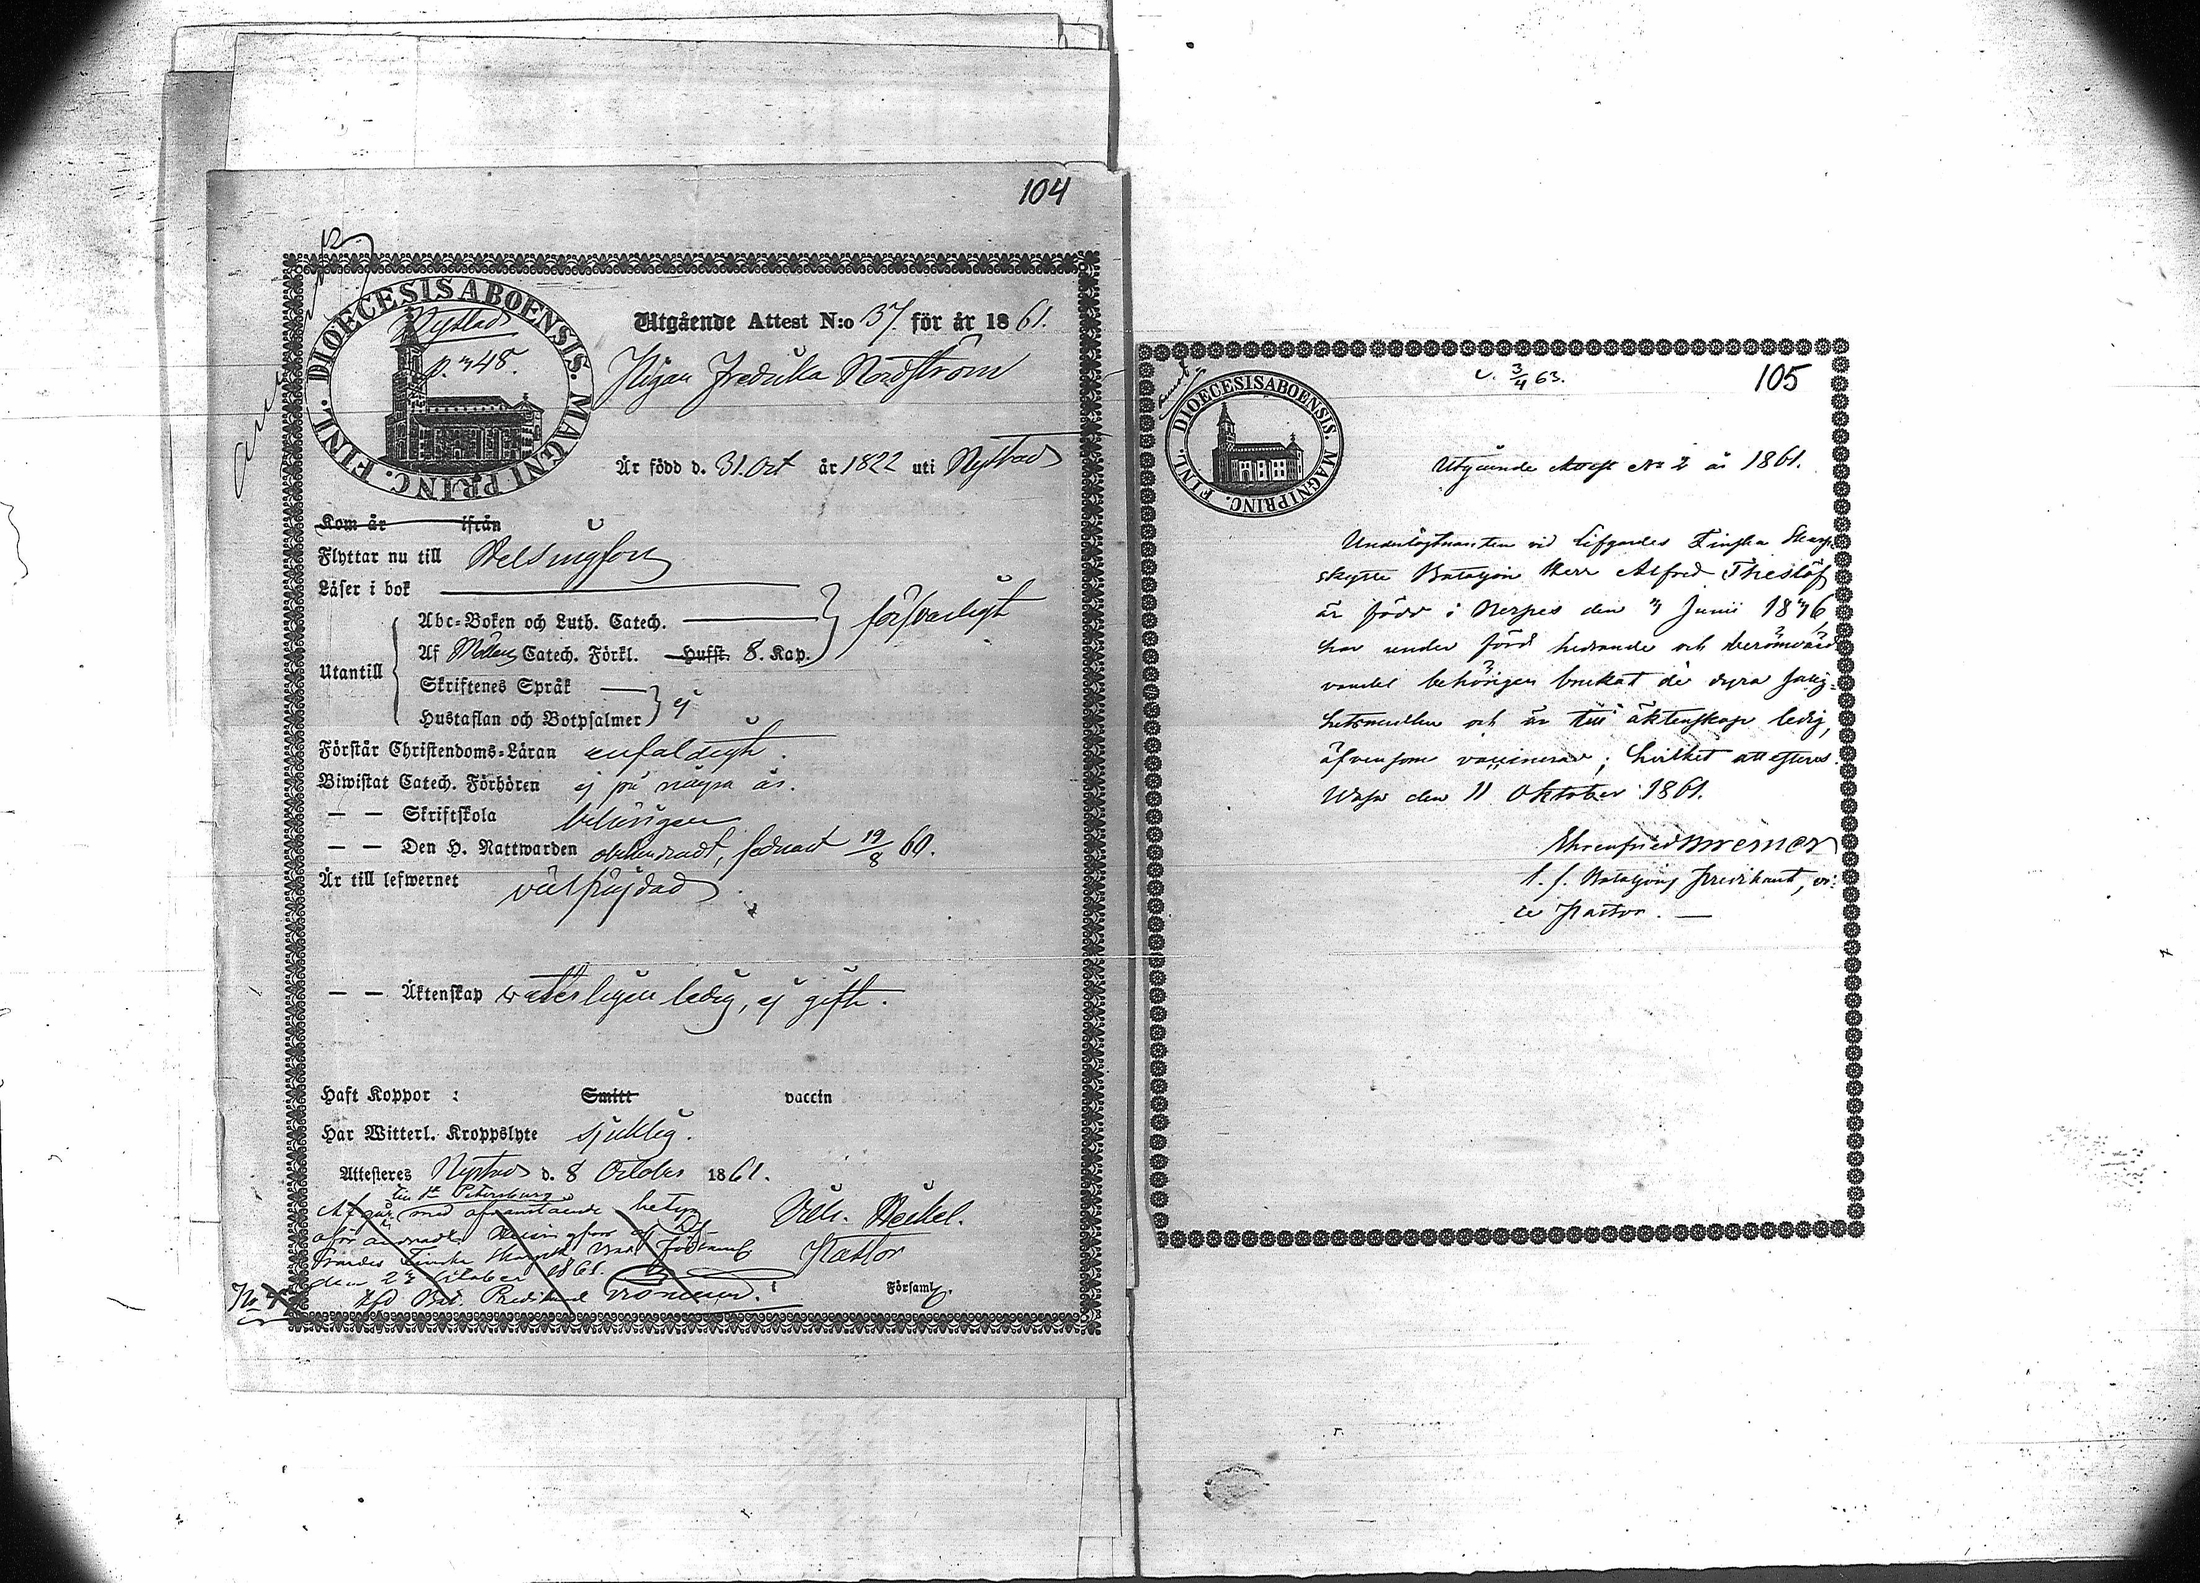 104
DIOECESIS ABOENSIS. MAGNI PRINC. FINL.
Nystad
p. 348.
Utgående Attest N:o 37. för år 1861.
Pigan Fredrika Nordström
Är född d. 31 Oct år 1822 uti Nystad
Kom år ifrån
Flyttar nu till Helsingfors
Läser i bok
Abc-Boken och Luth. Catech.
försvarligt
Utantill
Af Möllers Catech. Förkl. Hufst. 8. Kap.
Skriftenes Språk
Hustaflan och Botpsalmer ej
Förstår Christendoms-Läran enfaldigt.
Biwistat Catech. Förhören ej på några år.
— — Skriftskola behörigen
— — Den H. Nattwarden obehindradt, sednast 19/8 60.
Är till lefwernet välfrejdad.
— — Äktenskap veterligen ledig, ej gift.
Haft Koppor : Smitt vaccin
Har Witterl. Kroppslyte sjuklig.
Attesteres Nystad d. 8 October 1861.
till St Petersburg
med ofvanstående betyg
Finska
den 23 October 1861.
Bat. Predikant
Vilh. Heikel.
Pastor
i
Församl.
No 4
105
DIOECESIS ABOENSIS. MAGNI PRINC. FINL.
v. 3/4 63.
Utgående Attest No 2 år 1861.
Underlöjtnanten vid Lifgardes Finska Skarp-
skytte Bataljon Herr Alfred Theslöf
är född i Nerpes den 3 Junii 1836
har under förd hedrande och berömvärd
vandel behörigen brukat de dyra salig-
hetsmedlen och är till äktenskap ledig,
äfvensom vaccinerad; hvilket attesteras.
Wasa den 11 Oktober 1861.
Ehrenfried Bremer
t. f. Bataljons Predikant, vi-
ce Pastor. —